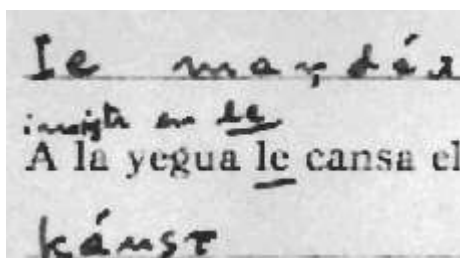 Ie mandéı
insiste en le
A la yegua le cansa el
kánsт